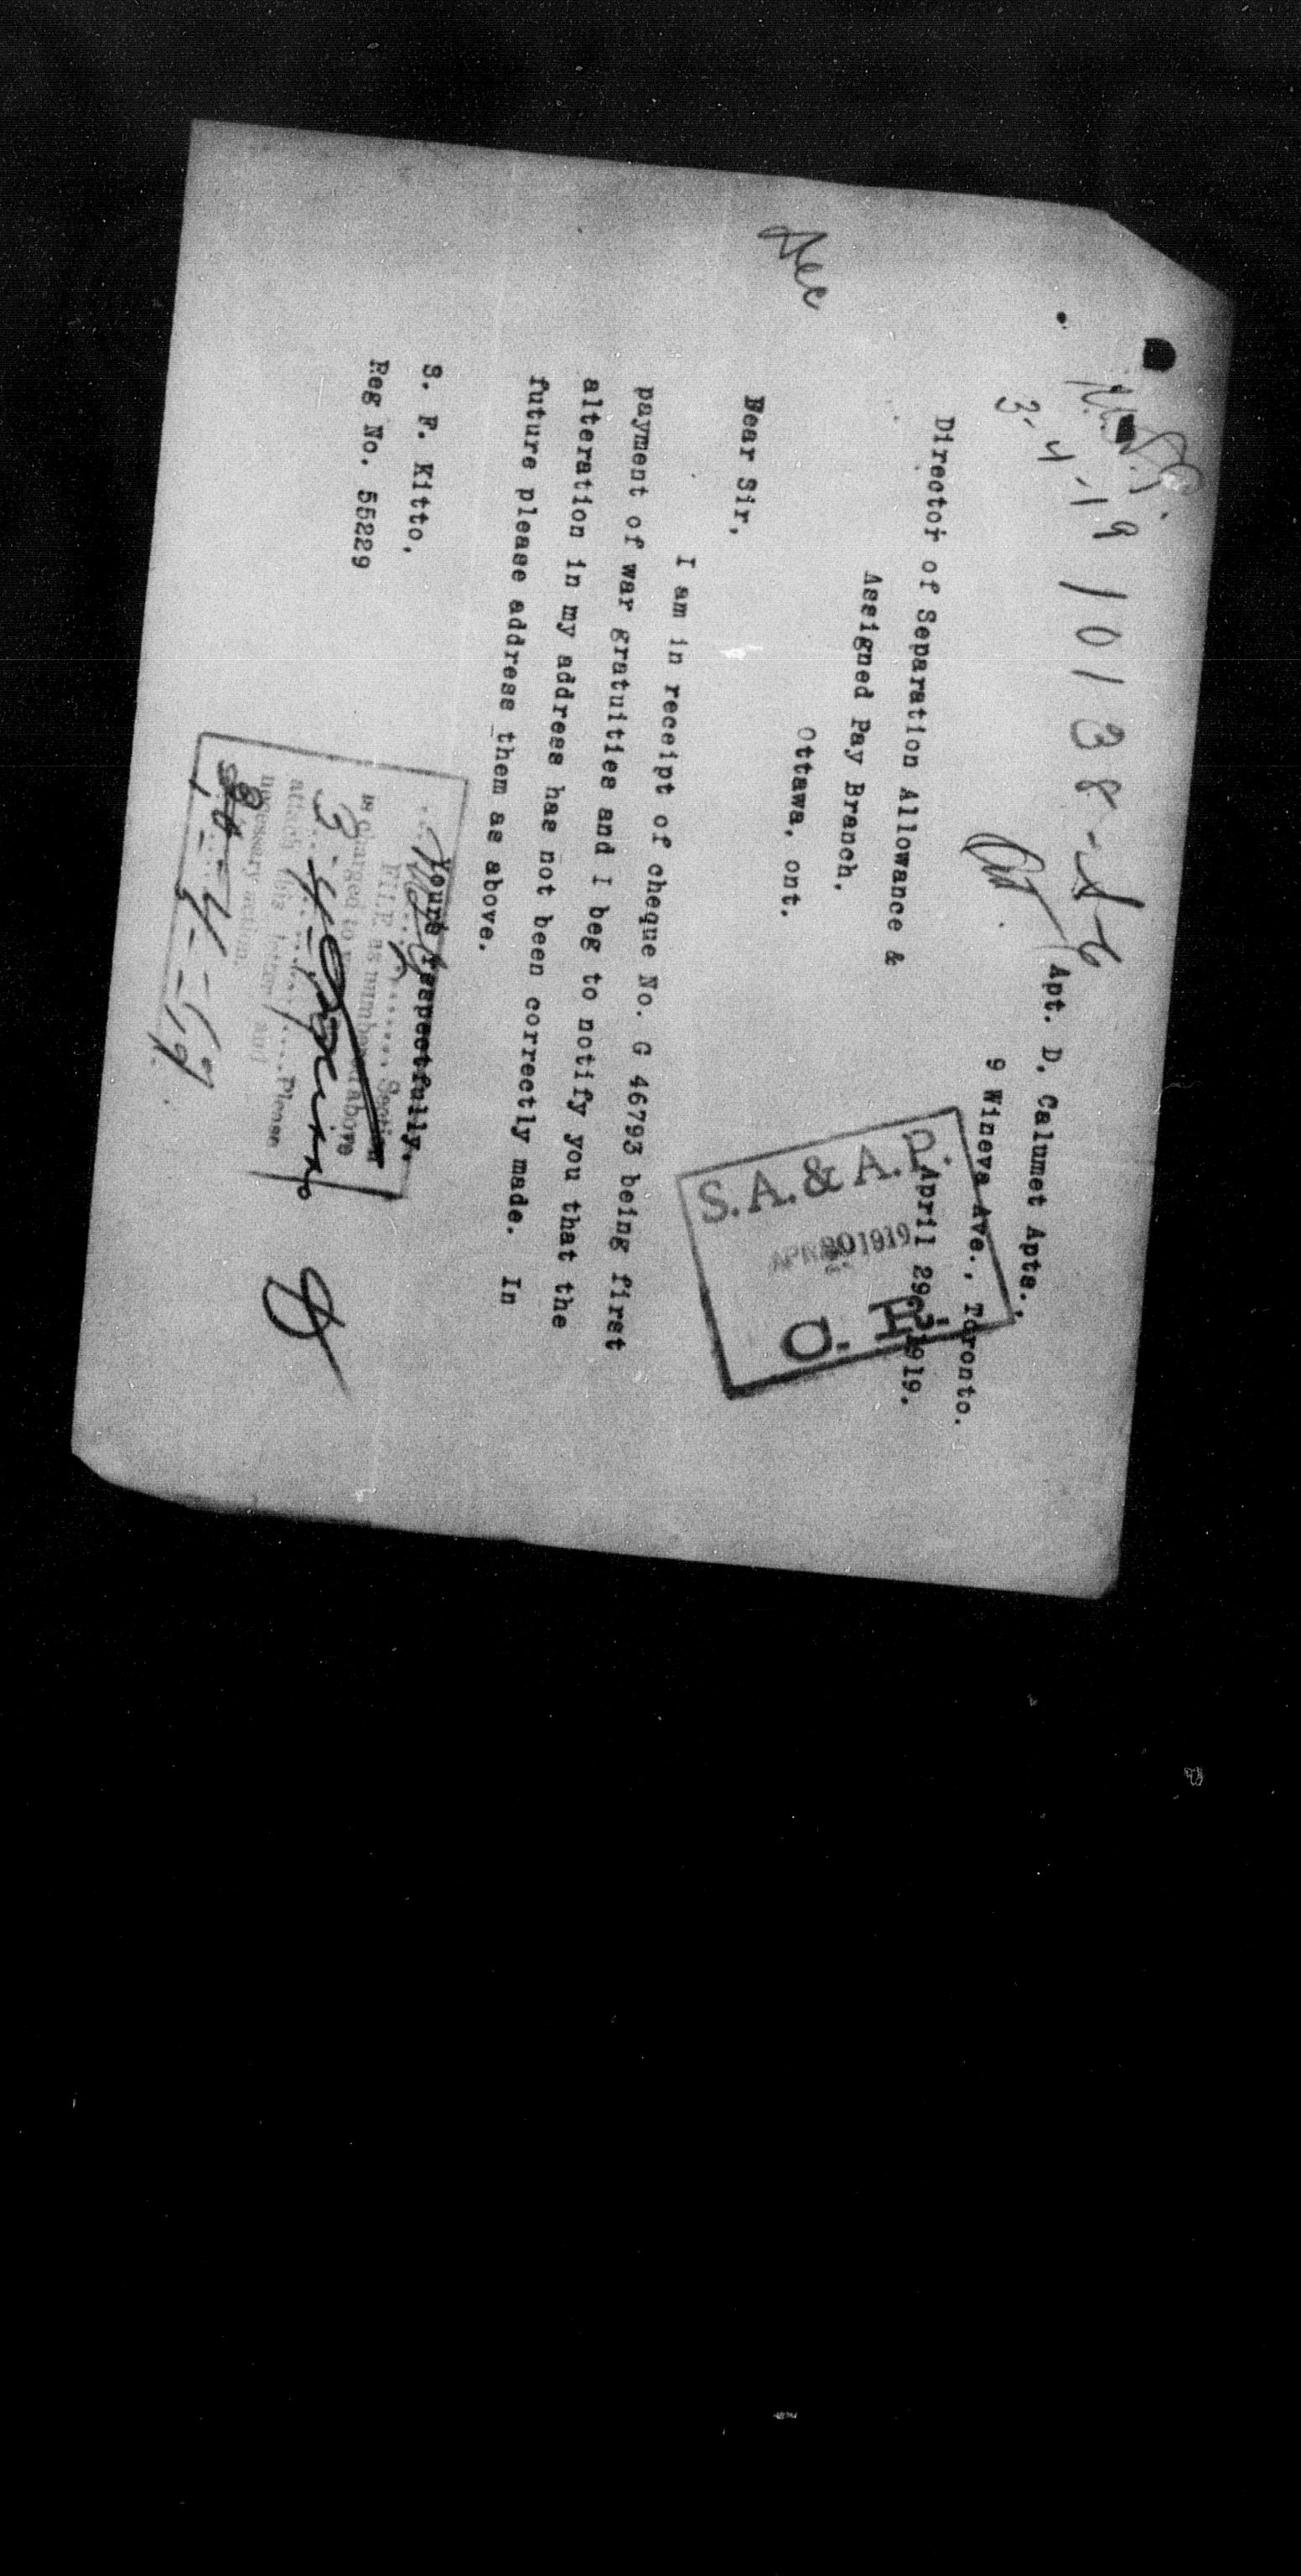 3-4-19
101388-
Apt. D. Calumet Apts.,
9 Wineva Ave., Toronto.
April 29, 1919.
S.A.&A.P.
APR 30 1919
C. R.
Director of Separation Allowance &
Assigned Pay Branch,
Ottawa, ont.
Dear Sir,
I am in receipt of cheque No. G 46793 being first
payment of war gratuities and I beg to notify you that the
alteration in my address has not been correctly made. In
future please address them as above.
Yours respectfully,
S. F. Kitto,
Reg No. 55229
FILE as numbered above
is charged to
attach this letter and
necessary action.